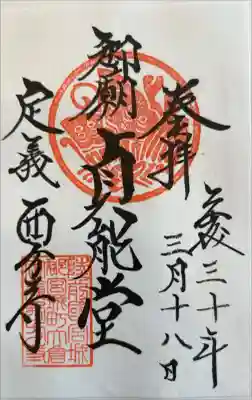 奉拝
平成三十年
三月十八日
御廟
貞能堂
定義
西方寺